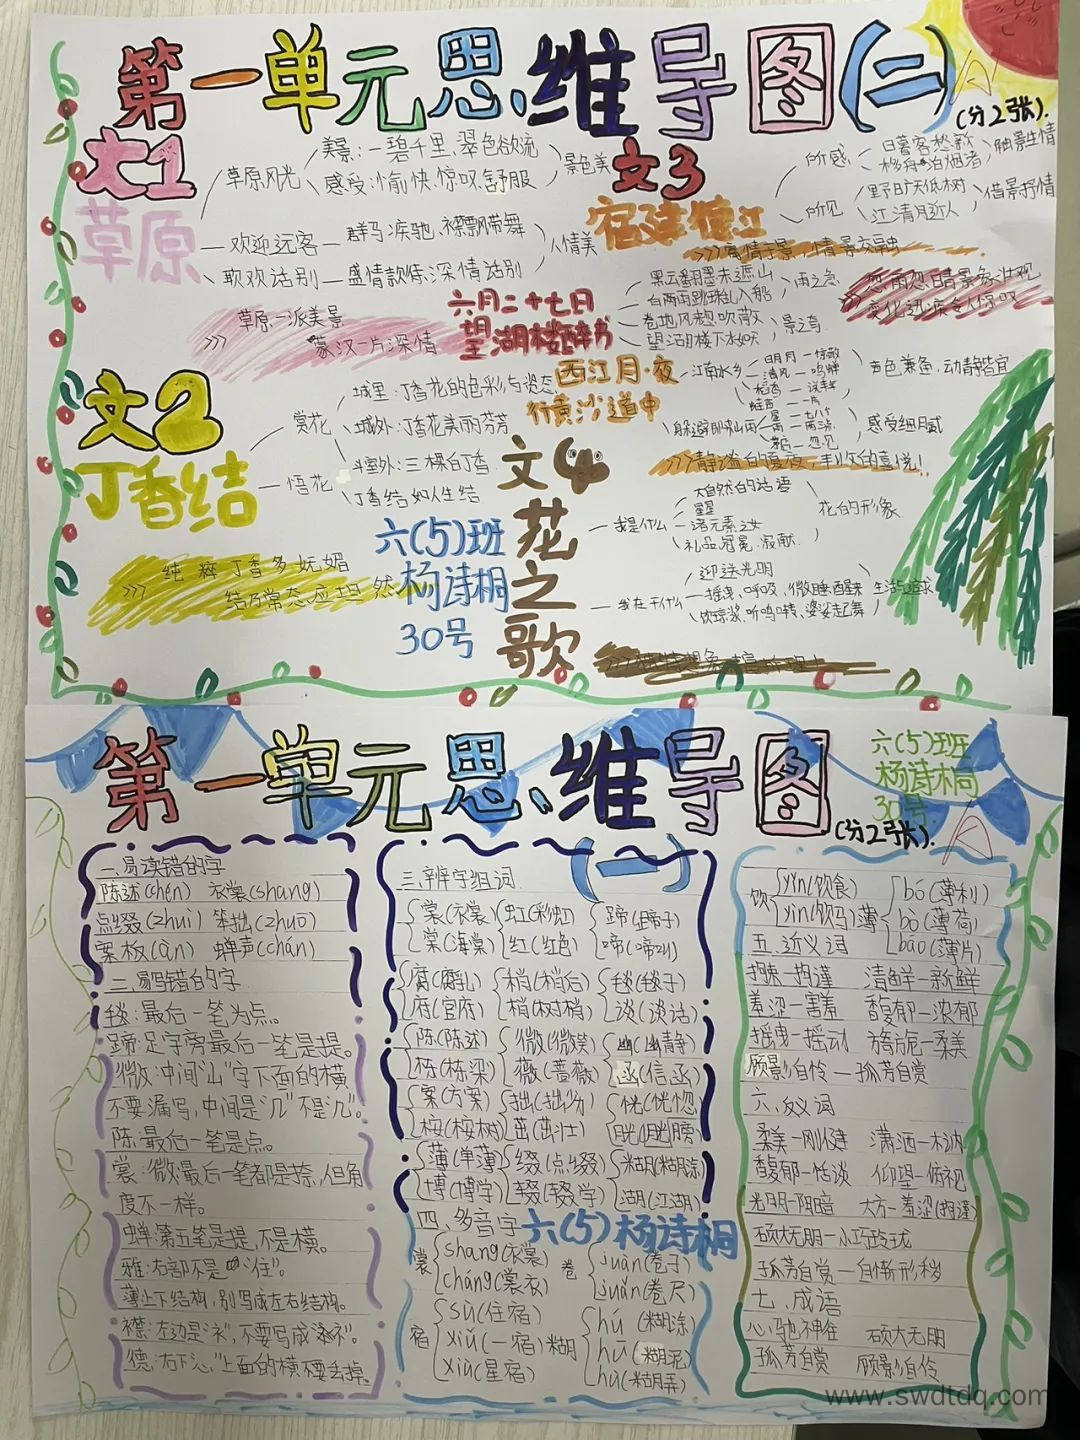 第一单元思维导图(二)
(分2张).
A
文1
草原
草原风光
美景:一碧千里,翠色欲流
感受:愉快,惊叹,舒服
景色美
欢迎远客
群马疾驰,襟飘带舞
歌欢话别
盛情款待,深情话别
人情美
>>>
草原一派美景
蒙汉一片深情
文2
丁香结
赏花
城里:丁香花的色彩与姿态
城外:丁香花美丽芬芳
悟花
斗室外:三棵白丁香
丁香结如人生结
>>>
纯粹丁香多妩媚
结乃常态应坦然
六(5)班
杨诗桐
30号
文3
宿建德江
所感
日暮客愁新
移舟泊烟渚
触景生情
所见
野旷天低树
江清月近人
借景抒情
>>>寓情于景,情景交融
六月二十七日
望湖楼醉书
黑云翻墨未遮山
白雨跳珠乱入船
雨之急
卷地风来忽吹散
望湖楼下水如天
景之奇
忽雨忽晴景象壮观
变化迅疾令人惊叹
西江月·夜
行黄沙道中
江南水乡
明月—惊鹊
清风—鸣蝉
稻香—说丰年
蛙声—一片
声色兼备,动静皆宜
星—七八个
雨—两三点
茅店—忽见
感受细腻
>>>静谧的夏夜,丰收的喜悦!
文4
花之歌
我是什么
大自然的话语
星星
诸元素之女
礼品,冠冕,祭献
花的形象
我在干什么
迎送光明
摇曳,呼吸,微睡,醒来
饮琼浆,听鸟啭,婆娑起舞
生活与追求
第一单元思维导图
(一)
(分2张).
六(5)班
杨诗桐
30号
A
一、易读错的字
陈述(chén) 衣裳(shang)
点缀(zhuì) 笨拙(zhuō)
案板(àn) 蝉声(chán)
二、易写错的字
毯:最后一笔为点。
蹄:足字旁最后一笔是提。
微:中间"山"字下面的横
不要漏写,中间是"几"不是"儿"。
陈:最后一笔是点。
裳:微:最后一笔都是捺,但角
度不一样。
蝉:第五笔是提,不是横。
雅:右部不是"住"。
薄:上下结构,别写成左右结构。
襟:左边是"衤",不要写成"礻"。
德:右下"心"上面的横不要丢掉。
三、辨字组词
裳(衣裳) 虹(彩虹) 蹄(蹄子)
棠(海棠) 红(红色) 啼(啼叫)
腐(腐乳) 稍(稍后) 毯(毯子)
府(官府) 梢(树梢) 谈(谈话)
陈(陈述) 微(微笑) 幽(幽静)
栋(栋梁) 薇(蔷薇) 函(信函)
案(方案) 拙(拙劣) 恍(恍惚)
桉(桉树) 茁(茁壮) 胱(膀胱)
薄(单薄) 缀(点缀) 糊(糊涂)
博(博学) 辍(辍学) 湖(江湖)
四、多音字
六(5)杨诗桐
裳
shang(衣裳)
cháng(裳衣)
卷
juàn(卷子)
juǎn(卷尺)
宿
sù(住宿)
xiǔ(一宿)
xiù(星宿)
糊
hú(糊涂)
hū(糊泥)
hù(糊弄)
饮
yǐn(饮食)
yìn(饮马)
薄
bó(薄利)
bò(薄荷)
báo(薄片)
五、近义词
拘束—拘谨 清鲜—新鲜
羞涩—害羞 馥郁—浓郁
摇曳—摇动 旖旎—柔美
顾影自怜—孤芳自赏
六、反义词
柔美—刚健 潇洒—木讷
馥郁—恬淡 仰望—俯视
光明—阴暗 大方—羞涩(拘谨)
硕大无朋—小巧玲珑
孤芳自赏—自惭形秽
七、成语
心驰神往 硕大无朋
孤芳自赏 顾影自怜
www.swdtdq.com